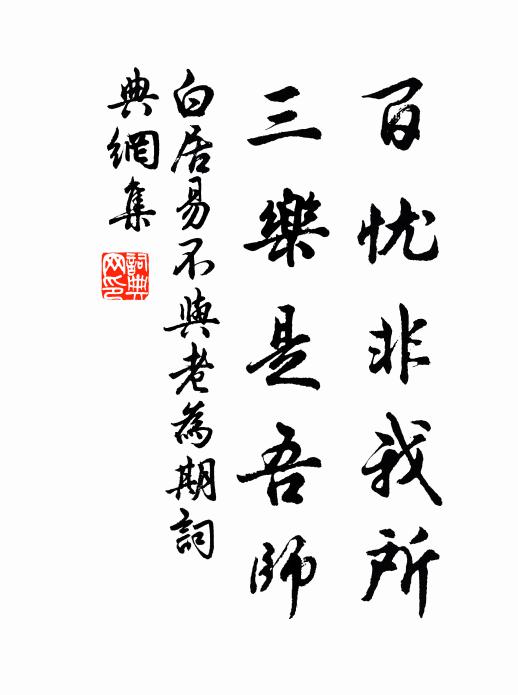 百忧非我所
三樂是吾師
白居易不與老為期詞
典網集
詞典
网印